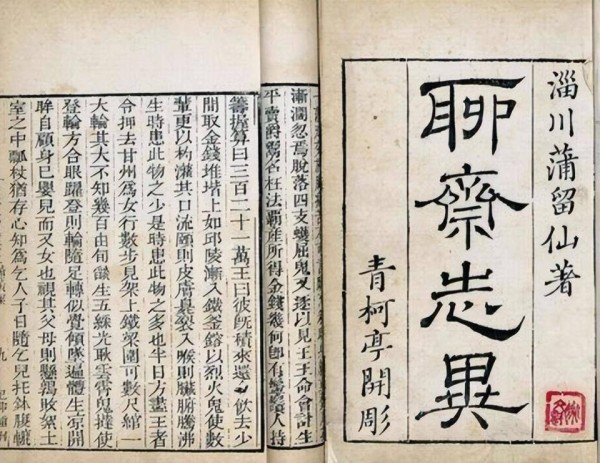 淄川蒲留仙著
聊齋志異
青柯亭開彫
忽焉脫落四支攣屈鬼又逐以見王王命會計生
平賣爵鬻名枉法霸產所得金錢幾何卽有鬚人持
籌握算曰三百二十一萬王曰彼旣積來還飲去少
間取金錢堆堦上如邱陵漸入鐵釜鎔以烈火鬼使數
輩更以杓灌其口流頤則皮膚臭裂入喉則臟腑騰沸
生時患此物之少是時患此物之多也半日方盡王者
令押去甘州爲女行數步見架上鐵梁圍可數尺綰一
火輪其大不知幾百由旬燄生五綵光耿雲霄鬼撻使
登輪方合眼躍登則輪隨足轉似覺傾墜遍體生涼開
眸自顧身已嬰兒而又女也視其父母則懸鶉敗絮土
室之中瓢杖猶存心知爲乞人子日隨乞兒托鉢腹轆